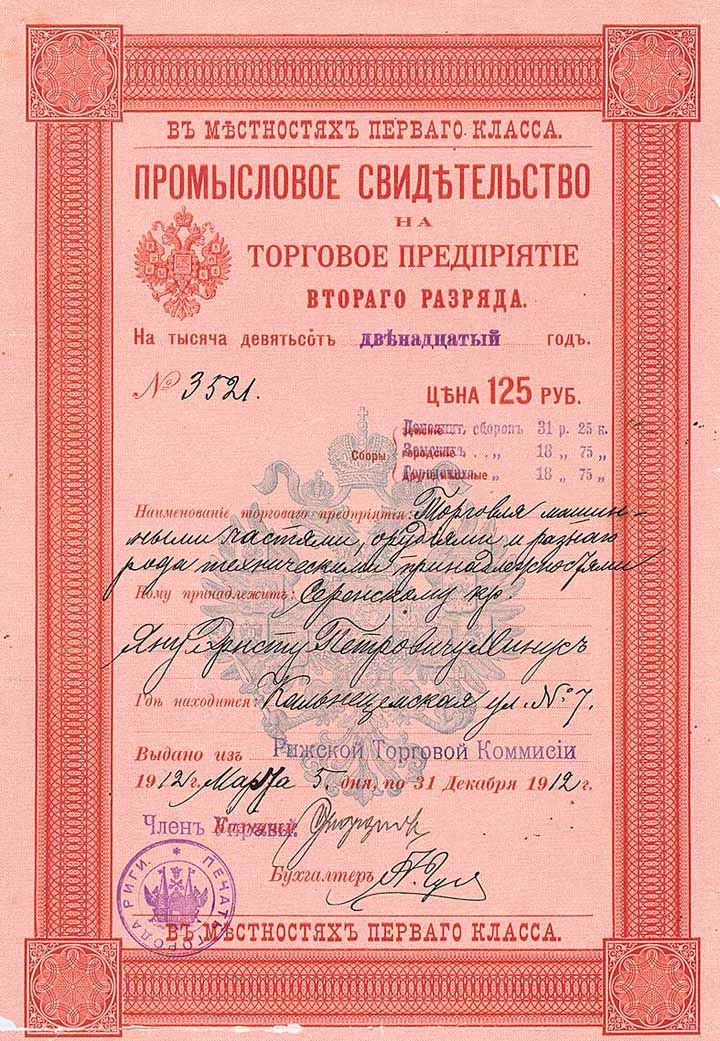 ВЪ МѢСТНОСТЯХЪ ПЕРВАГО КЛАССА.
ПРОМЫСЛОВОЕ СВИДѢТЕЛЬСТВО
НА
ТОРГОВОЕ ПРЕДПРІЯТІЕ
ВТОРАГО РАЗРЯДА.
На тысяча девятьсотъ двѣнадцатый годъ.
№ 3521.
ЦѢНА 125 РУБ.
сборовъ 31 р. 25 к.
Сборы
земскіе 18 „ 75 „
городскіе
другіе мѣстные 18 „ 75 „
Наименованіе торговаго предпріятія: Торговля машин-
ными частями, орудіями и разнаго
рода техническими принадлежностями
Кому принадлежитъ: кр.
Яну Эрнсту Петровичу Минусъ
Гдѣ находится: Кальнецемская ул. № 7.
Выдано изъ Рижской Торговой Коммисіи
1912 г. Марта 5 дня, по 31 Декабря 1912 г.
Членъ Управы.
Бухгалтеръ
ПЕЧАТЬ ГОРОДА РИГИ.
ВЪ МѢСТНОСТЯХЪ ПЕРВАГО КЛАССА.